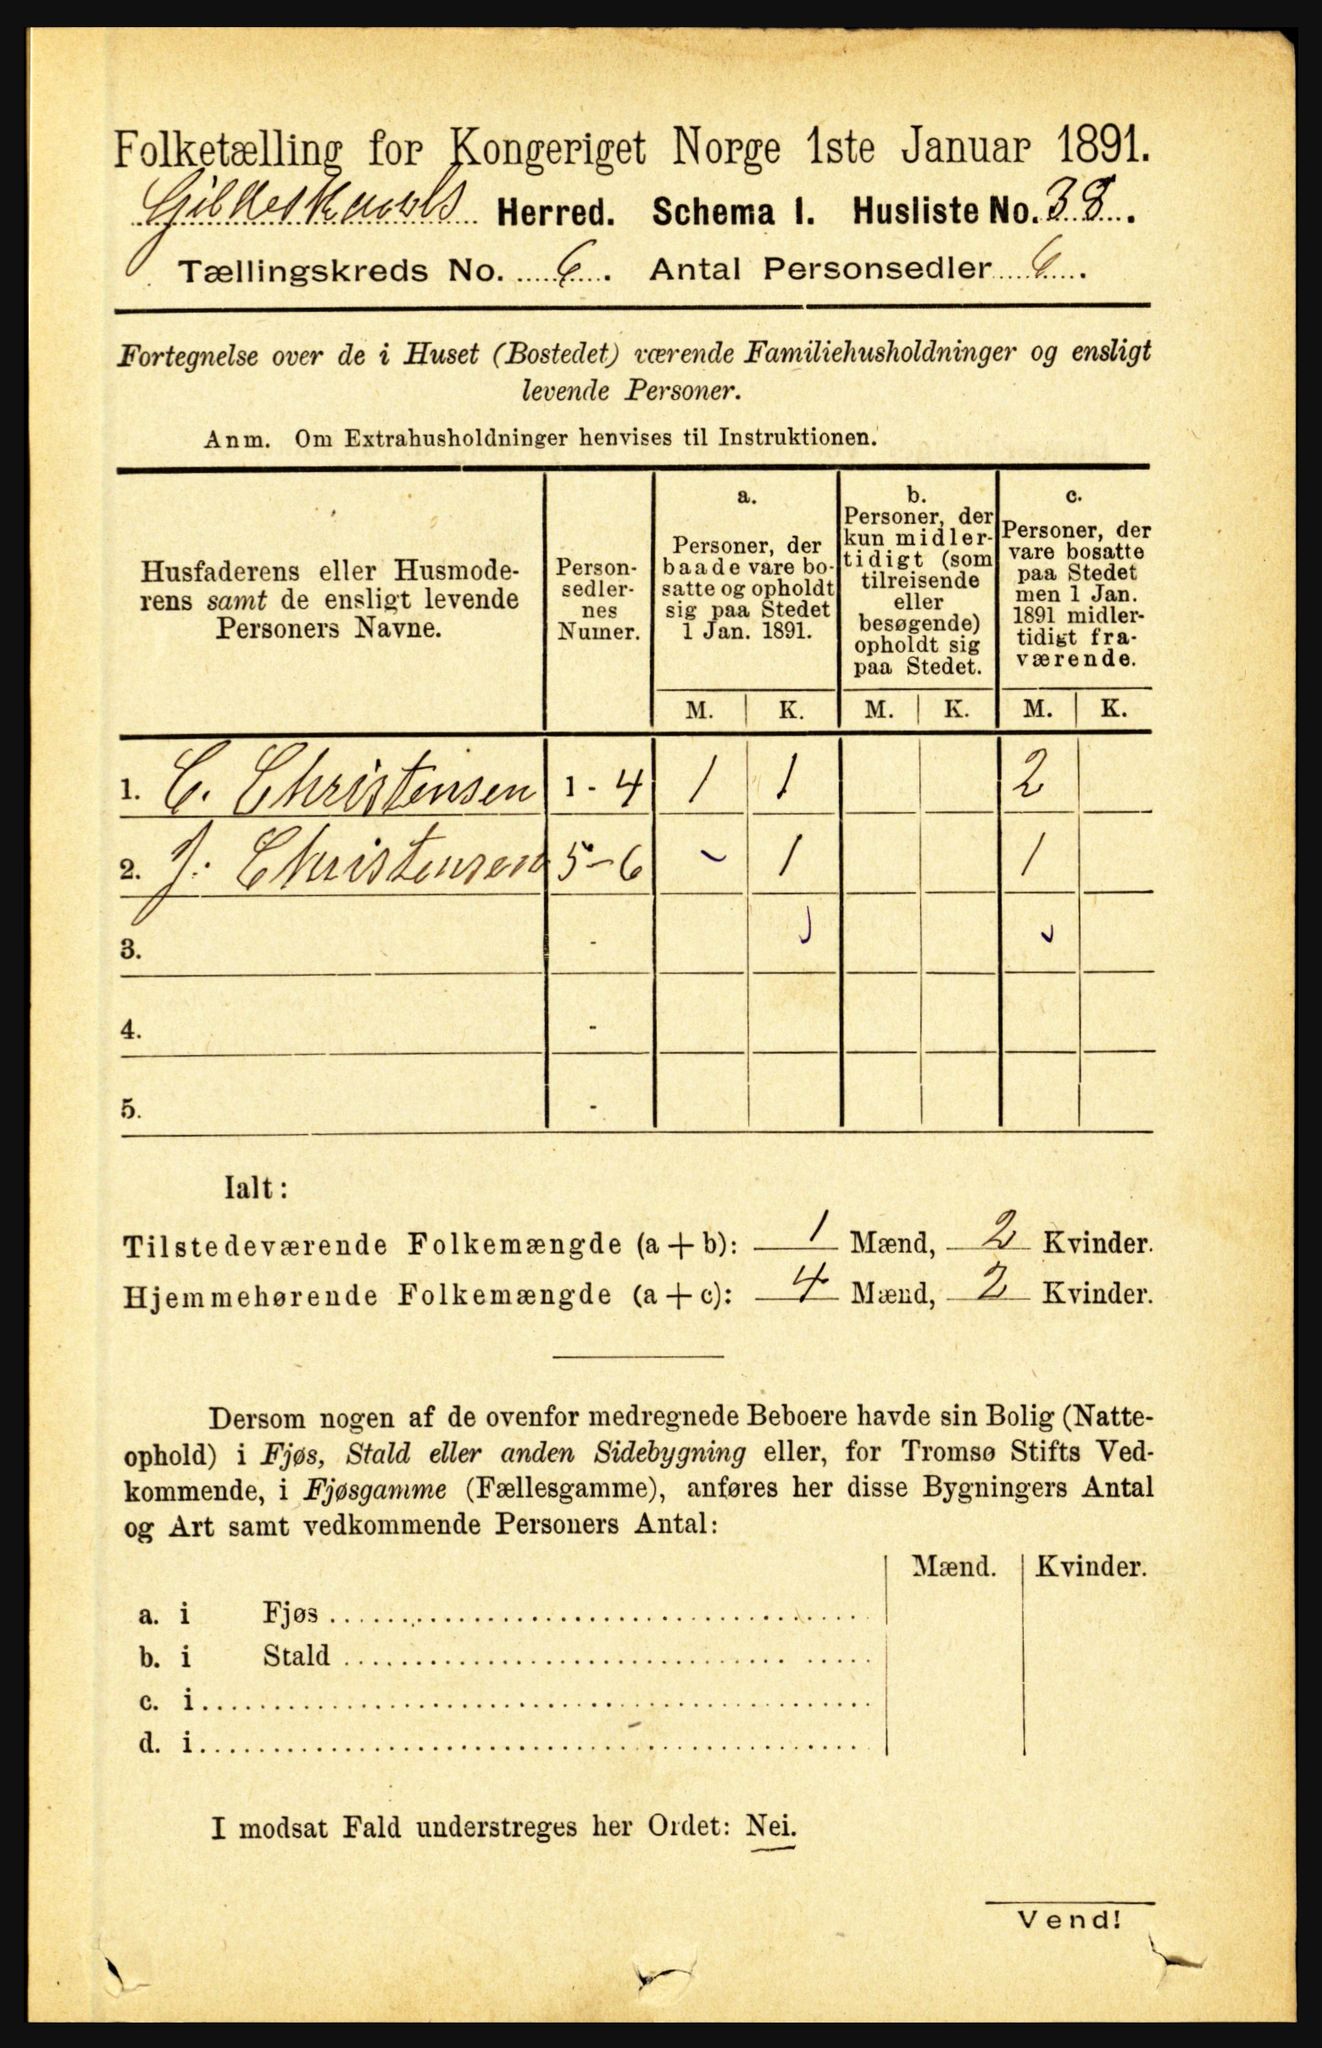 Folketælling for Kongeriget Norge 1ste Januar 1891.
Gildeskaals Herred. Schema I. Husliste No. 38.
Tællingskreds No. 6. Antal Personsedler 6.
Fortegnelse over de i Huset (Bostedet) værende Familiehusholdninger og ensligt
levende Personer.
Anm. Om Extrahusholdninger henvises til Instruktionen.
Husfaderens eller Husmode-
rens samt de ensligt levende
Personers Navne.
Person-
sedler-
nes
Numer.
a.
Personer, der
baade vare bo-
satte og opholdt
sig paa Stedet
1 Jan. 1891.
b.
Personer, der
kun midler-
tidigt (som
tilreisende
eller
besøgende)
opholdt sig
paa Stedet.
c.
Personer, der
vare bosatte
paa Stedet
men 1 Jan.
1891 midler-
tidigt fra-
værende.
M. K. M. K. M. K.
1. C. Christensen 1 - 4 1 1 2
2. J. Christensen 5 - 6 - 1 1
3. -
4. -
5. -
Ialt:
Tilstedeværende Folkemængde (a + b): 1 Mænd, 2 Kvinder.
Hjemmehørende Folkemængde (a + c): 4 Mænd, 2 Kvinder.
Dersom nogen af de ovenfor medregnede Beboere havde sin Bolig (Natte-
ophold) i Fjøs, Stald eller anden Sidebygning eller, for Tromsø Stifts Ved-
kommende, i Fjøsgamme (Fællesgamme), anføres her disse Bygningers Antal
og Art samt vedkommende Personers Antal:
Mænd. Kvinder.
a. i Fjøs
b. i Stald
c. i
d. i
I modsat Fald understreges her Ordet: Nei.
Vend!